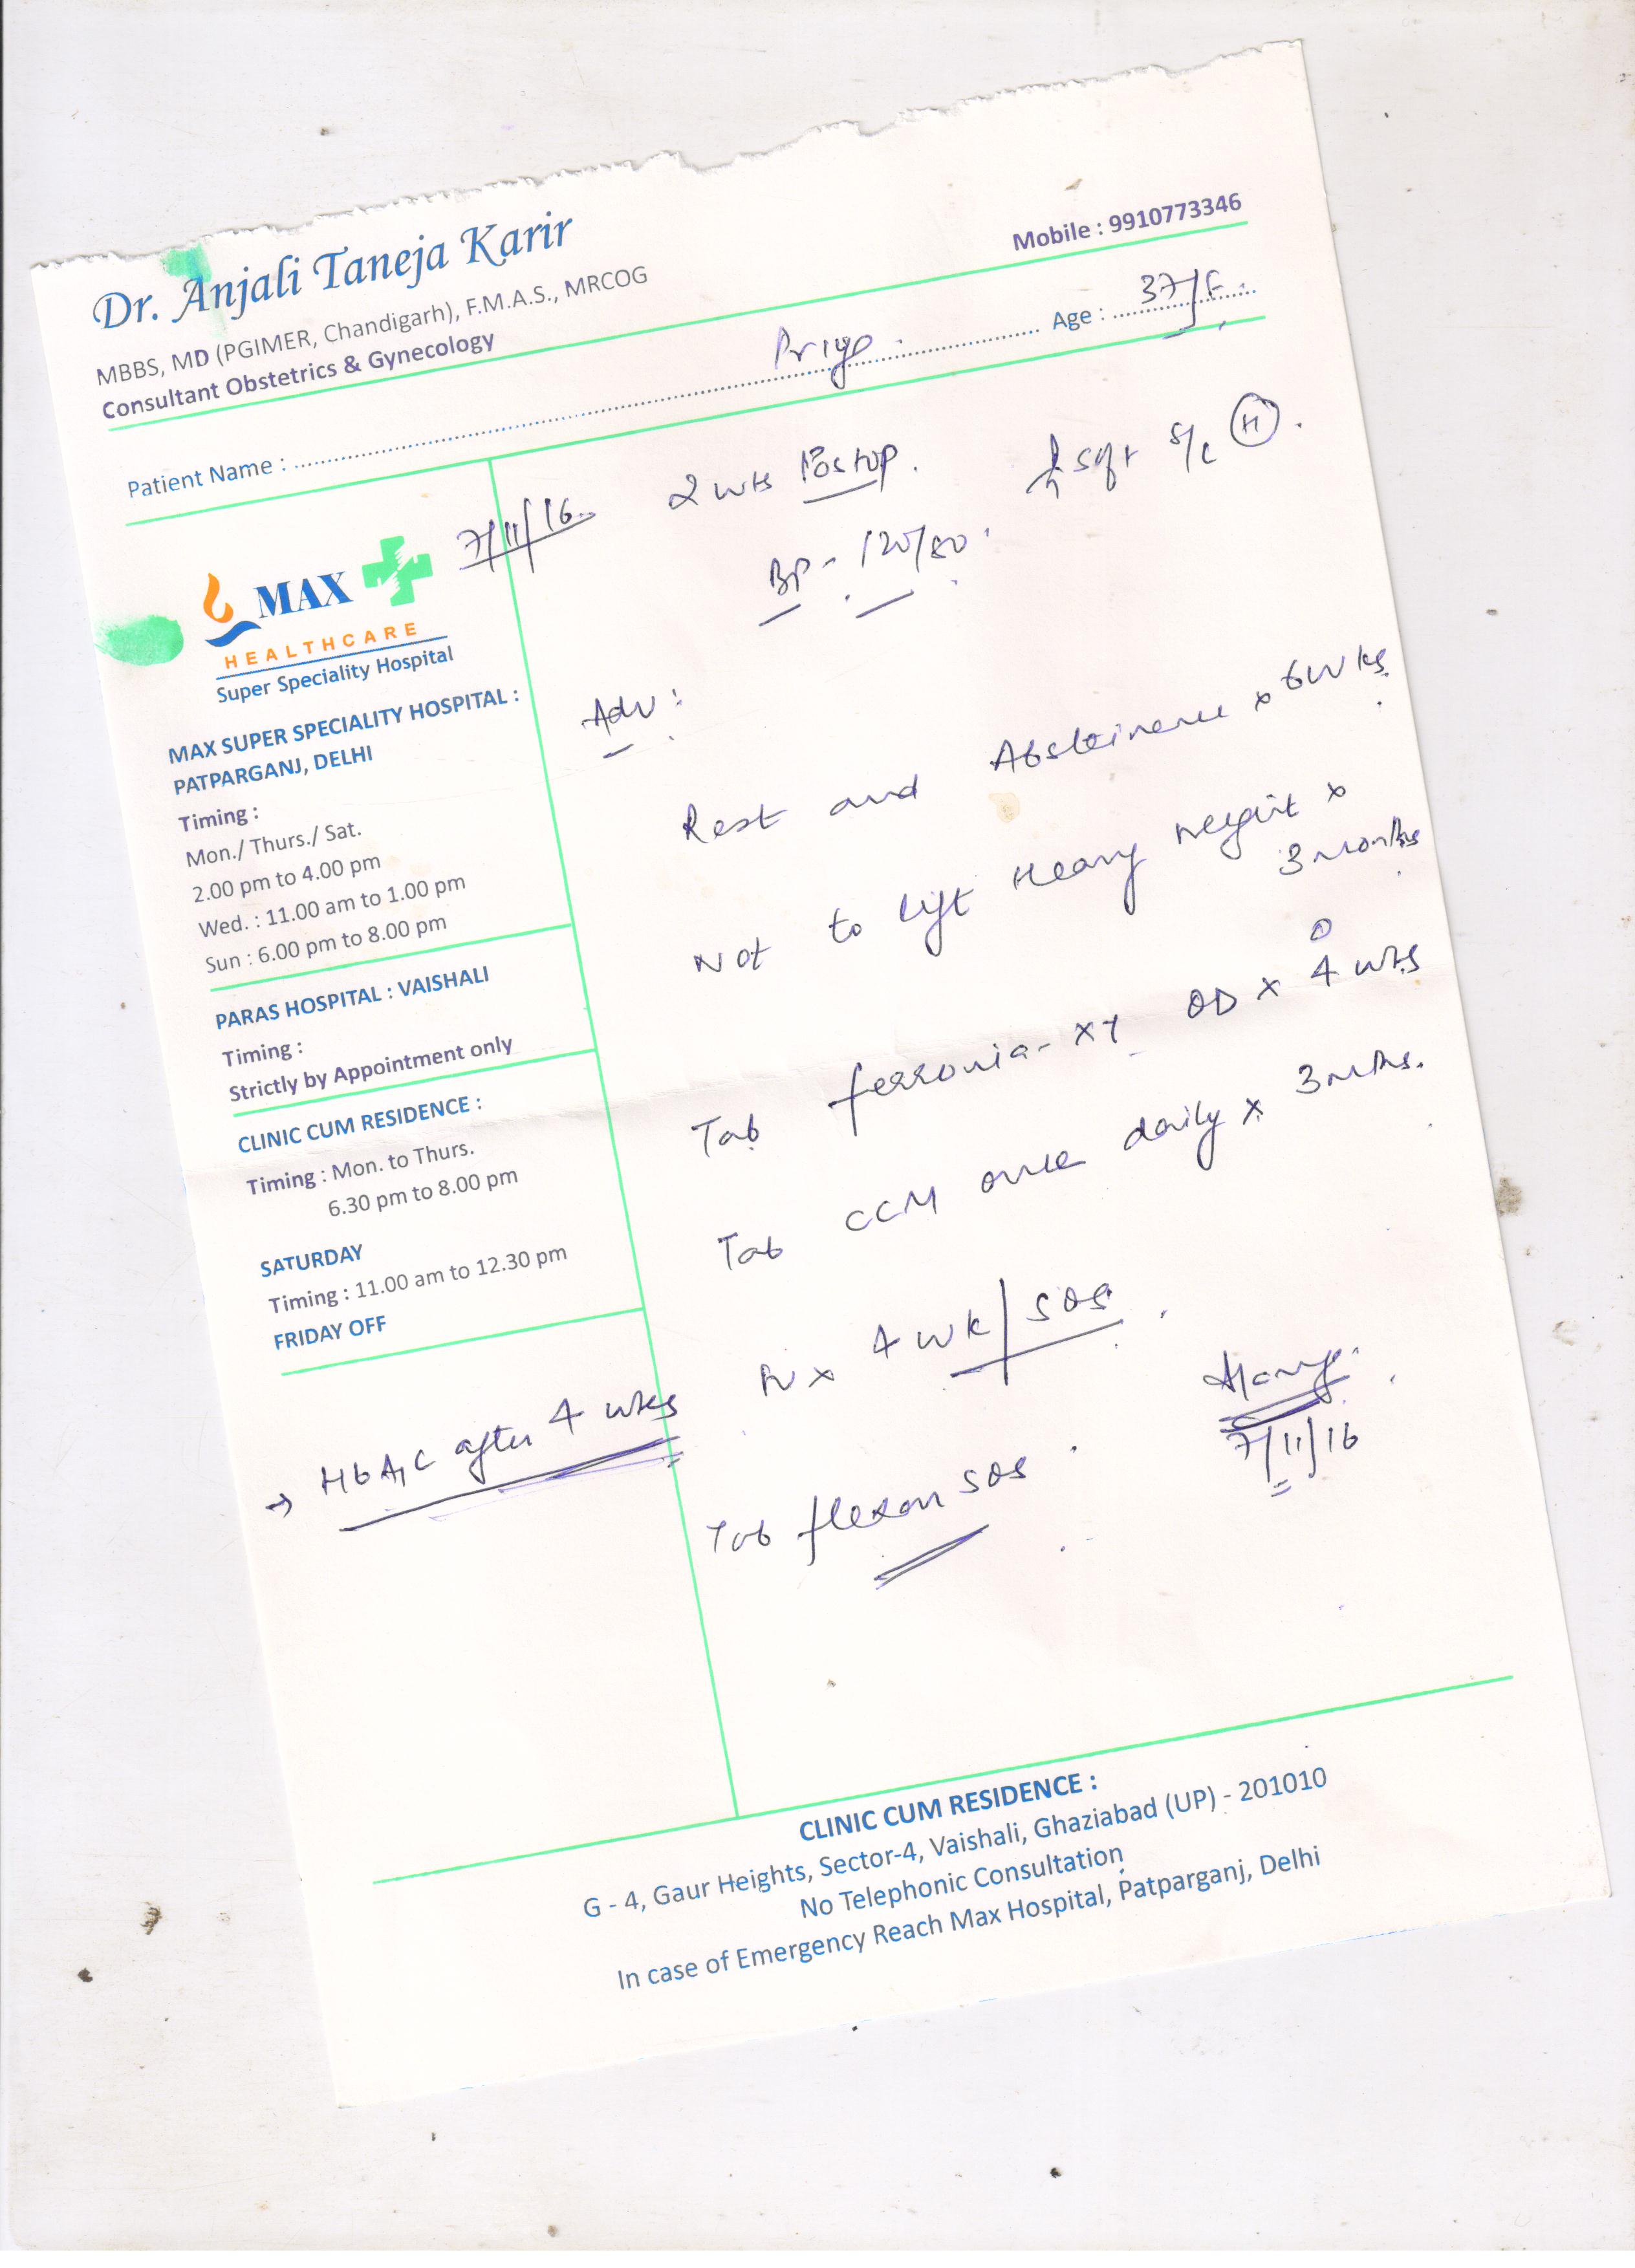 Dr. Anjali Taneja Karir
MBBS, MD (PGIMER, Chandigarh), F.M.A.S., MRCOG
Consultant Obstetrics & Gynecology
Mobile : 9910773346
Patient Name : Priya Age : 37/F
7/11/16 2 wks Postop.
S/L (H).
BP - 120/80
MAX
HEALTHCARE
Super Speciality Hospital
MAX SUPER SPECIALITY HOSPITAL :
PATPARGANJ, DELHI
Timing :
Mon./ Thurs./ Sat.
2.00 pm to 4.00 pm
Wed. : 11.00 am to 1.00 pm
Sun : 6.00 pm to 8.00 pm
PARAS HOSPITAL : VAISHALI
Timing :
Strictly by Appointment only
CLINIC CUM RESIDENCE :
Timing : Mon. to Thurs.
6.30 pm to 8.00 pm
SATURDAY
Timing : 11.00 am to 12.30 pm
FRIDAY OFF
→ HbA1C after 4 wks
Adv :
Rest and Abstinence x 6 wks
Not to lift Heavy weight x
3 months
Tab ferronia - XT OD x 4 wks
Tab CCM once daily x 3 mths.
4 wk / SOS
Tab flexon SOS
7/11/16
CLINIC CUM RESIDENCE :
G - 4, Gaur Heights, Sector-4, Vaishali, Ghaziabad (UP) - 201010
No Telephonic Consultation
In case of Emergency Reach Max Hospital, Patparganj, Delhi